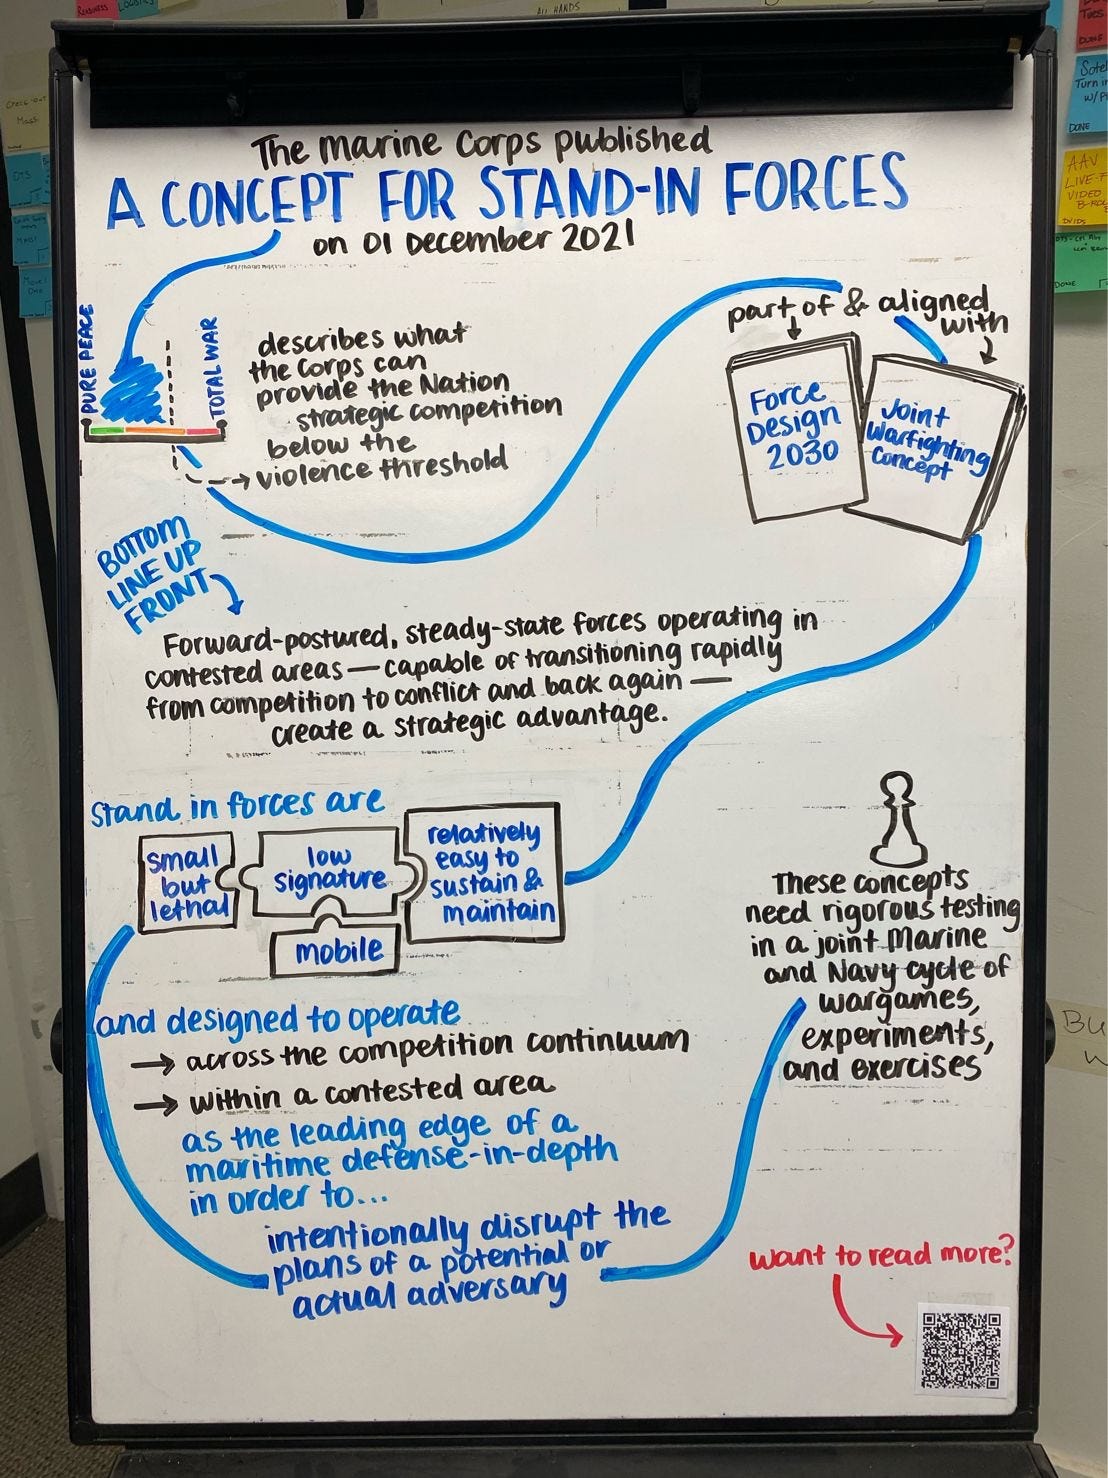 READINESS
LOGISTICS
ALL HANDS
The Marine Corps published
A CONCEPT FOR STAND-IN FORCES
on 01 December 2021
PURE PEACE
TOTAL WAR
describes what
the Corps can
provide the Nation
strategic competition
below the
violence threshold
part of & aligned
with
Force
Design
2030
Joint
Warfighting
Concept
BOTTOM
LINE UP
FRONT
Forward-postured, steady-state forces operating in
contested areas — capable of transitioning rapidly
from competition to conflict and back again —
create a strategic advantage.
Stand in forces are
small
but
lethal
low
signature
relatively
easy to
sustain &
maintain
mobile
and designed to operate
→ across the competition continuum
→ within a contested area
as the leading edge of a
maritime defense-in-depth
in order to...
intentionally disrupt the
plans of a potential or
actual adversary
These concepts
need rigorous testing
in a joint Marine
and Navy cycle of
wargames,
experiments,
and exercises
want to read more?
DTS
Tues
DONE
Turn in
DONE
AAV
LIVE-F
VIDEO
B-ROL
DVIDS
DONE
BU